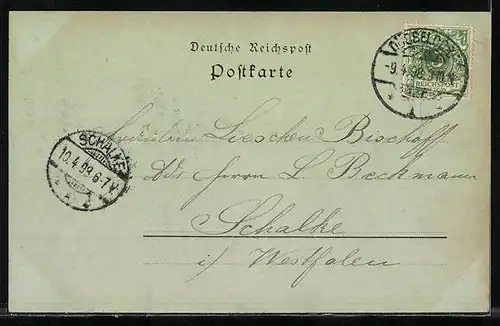 Deutsche Reichspost
Postkarte
REICHSPOST
SCHALKE
10.4.99.6-7V.
Fräulein Lieschen Bischoff
Adr. Herrn L. Beckmann
Schalke
i/ Westfalen